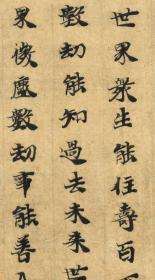 世界衆生能住壽百
數劫能知過去未來世
界微塵數劫事能善入